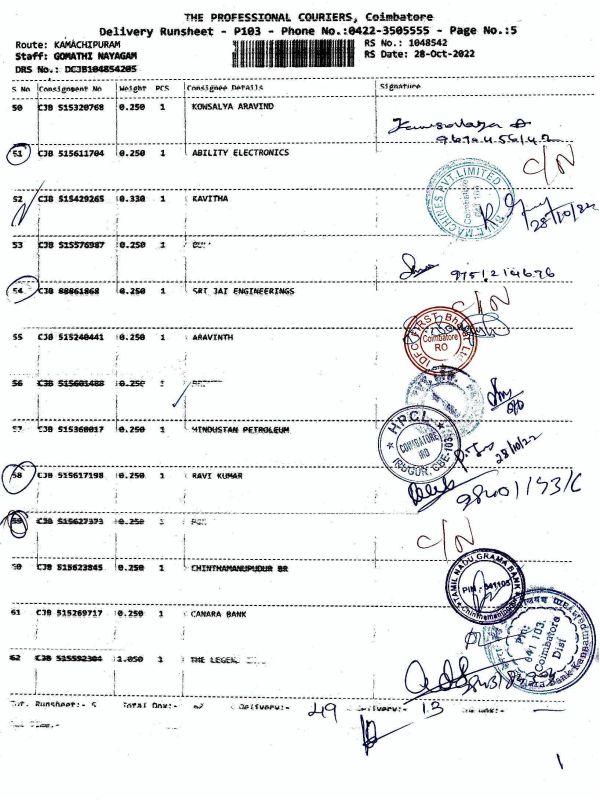 THE PROFESSIONAL COURIERS, Coimbatore
Delivery Runsheet - P103 - Phone No.:0422-3505555 - Page No.:5
Route: KAMACHIPURAM
RS No.: 1048542
Staff: GOMATHI NAYAGAM
RS Date: 28-Oct-2022
DRS No.: DCJB104854205
S No Consignment No Weight PCS Consignee Details Signature
50 CJB 515320768 0.250 1 KOWSALYA ARAVIND
51 CJB 515611704 0.250 1 ABILITY ELECTRONICS
C/N
52 CJB 515429265 0.330 1 KAVITHA
PVT.LIMITED Coimbatore
28/10/22
53 CJB 515576987 0.250 1
54 CJB 88861868 0.250 1 SRI JAI ENGINEERINGS
C/N
55 CJB 515240441 0.250 1 ARAVINTH
IDFC FIRST Bharat Ltd Coimbatore RO
56 CJB 515601488 0.250 1
57 CJB 515360017 0.250 1 HINDUSTAN PETROLEUM
H.P.C.L. COIMBATORE IRD IRUGUR, CBE-103.
28/10/22
58 CJB 515617198 0.250 1 RAVI KUMAR
59 CJB 515627373 0.250 1
C/N
60 CJB 515623845 0.250 1 CHINTHAMANUPUDUR BR
TAMIL NADU GRAMA BANK PIN - 641103
61 CJB 515269717 0.250 1 CANARA BANK
PIN: 641 103. Coimbatore Dist
62 CJB 515592304 1.050 1 THE LEGEN
Tot. Runsheet:- 5 Total Dox:- 62 Delivery:- 49 13
1